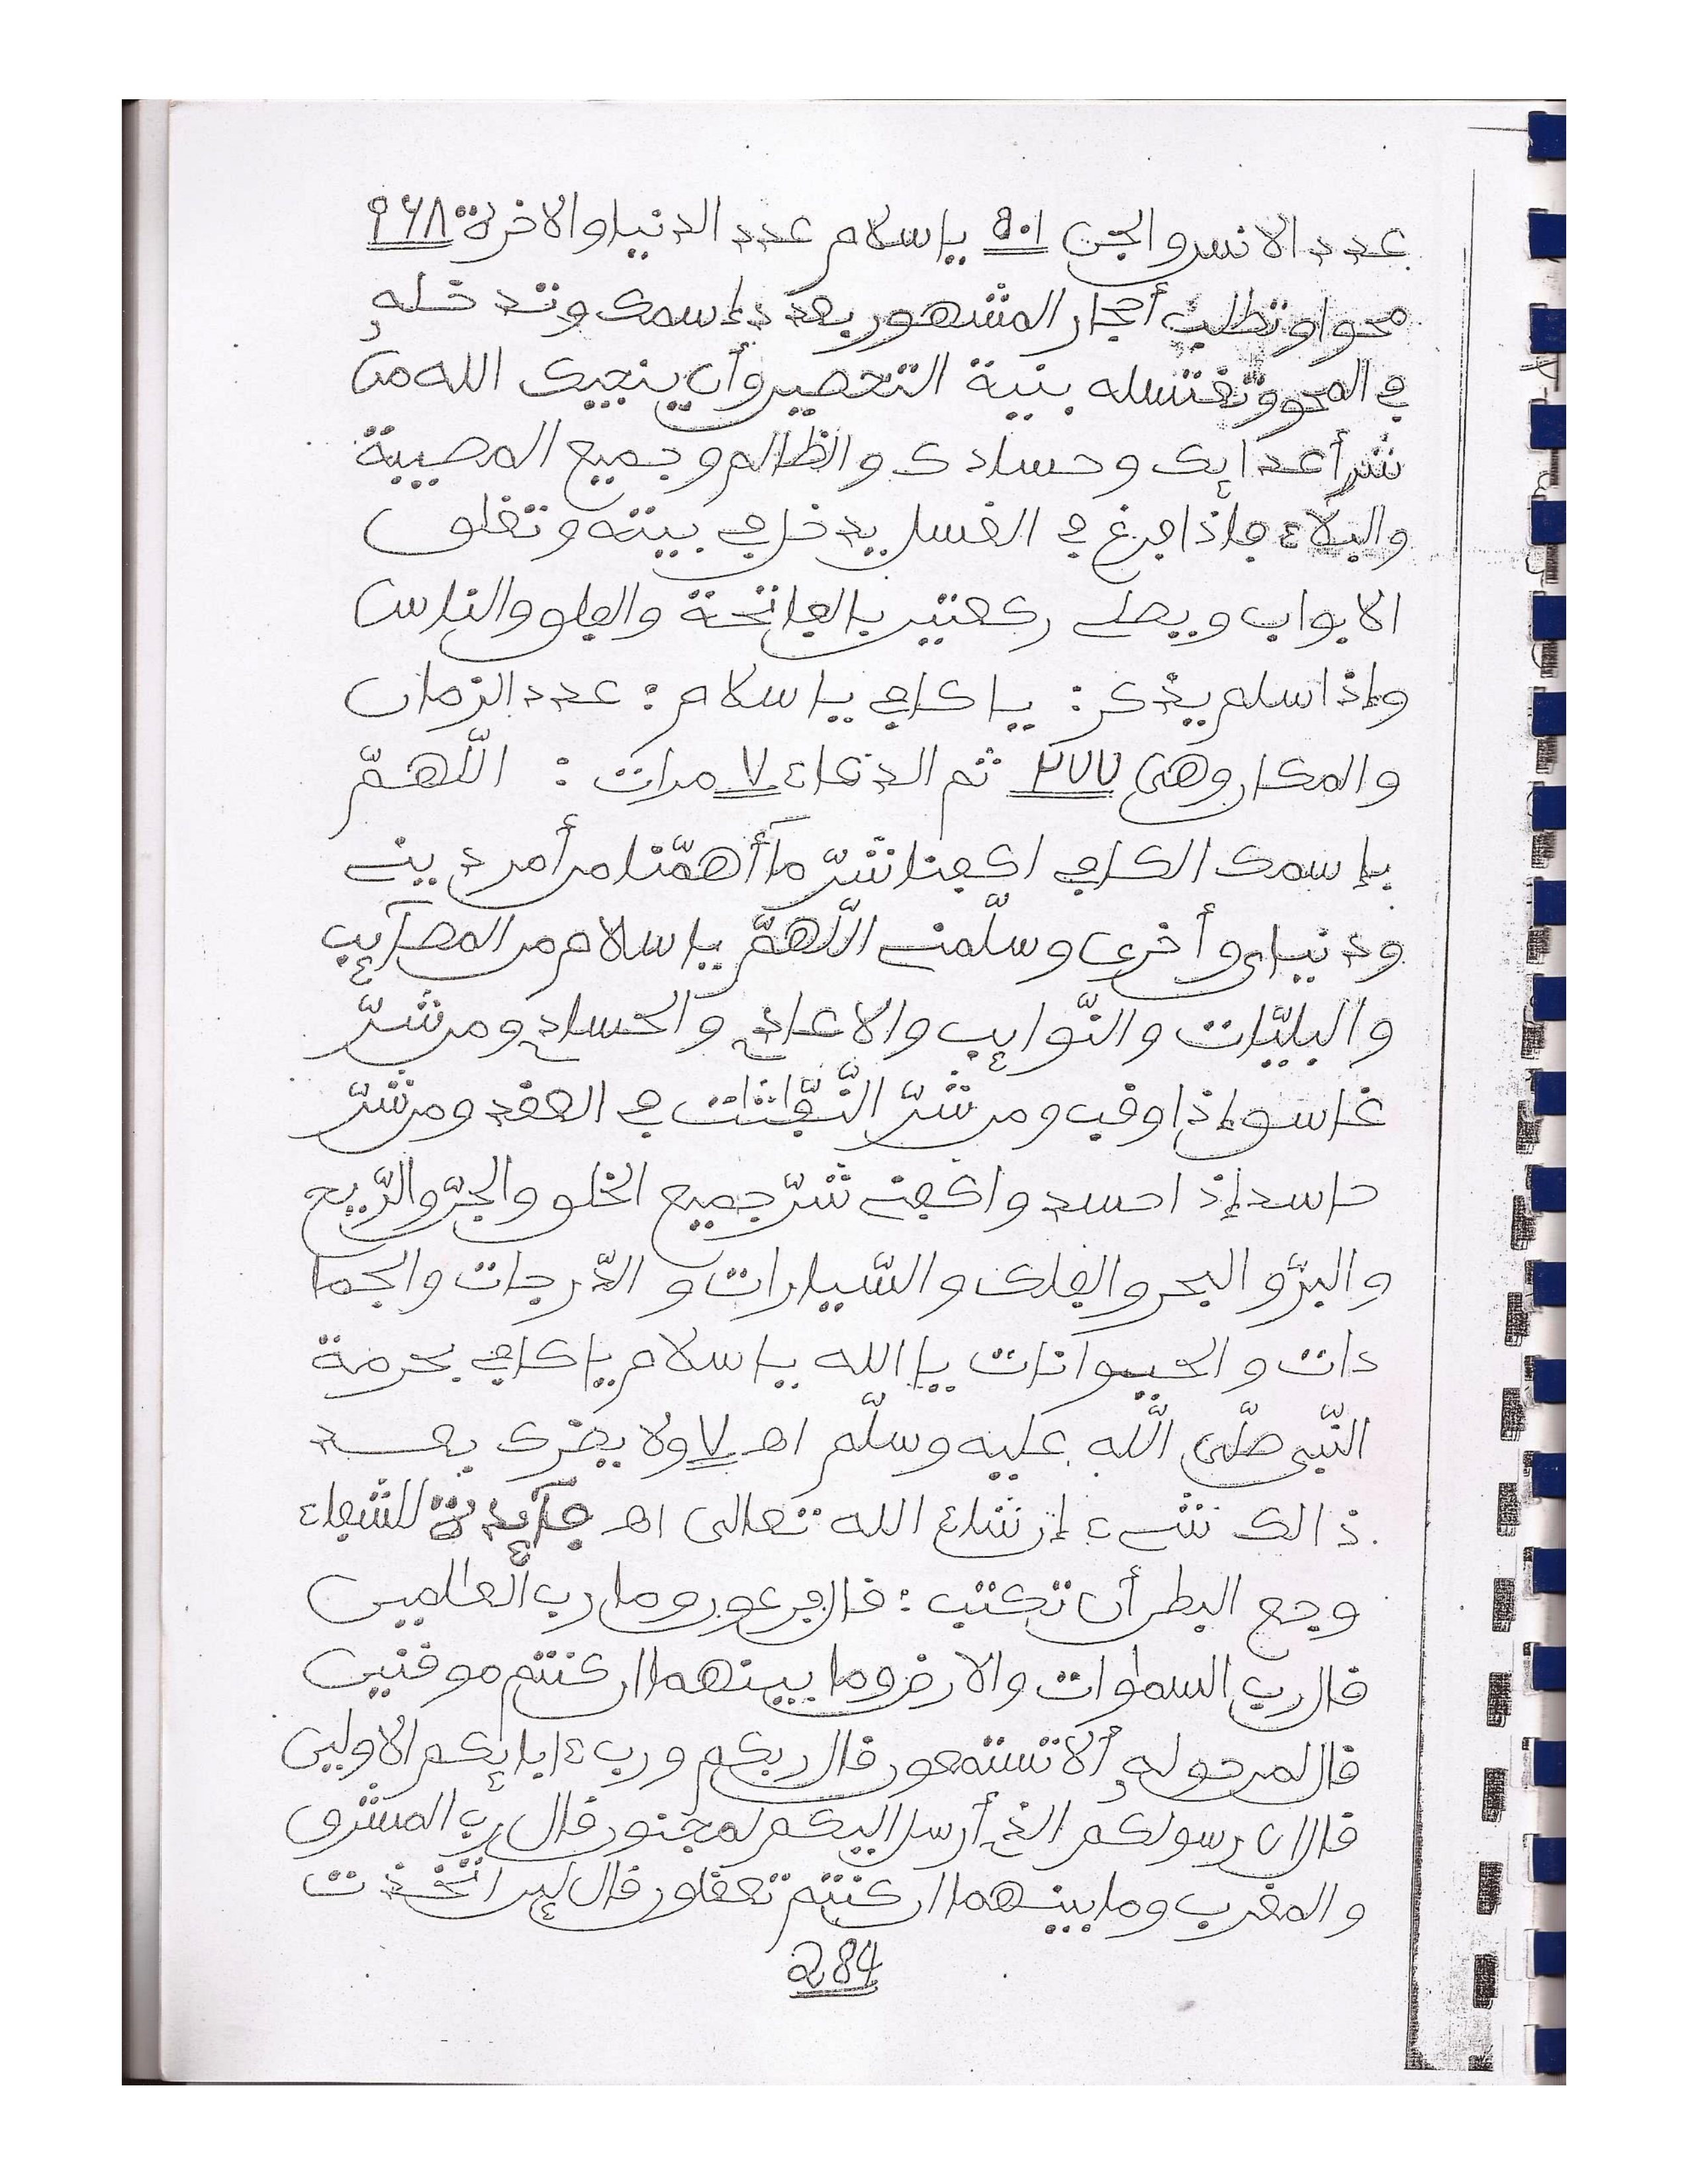 عدد الانس والجن ٩٠١ يا سلام عدد الدنيا والاخرة ٩٦٨
محوا وتطلب أحجار المشهور بعدد إسمك وتدخله
في المحو وتغتسله بنية التحصين وأن ينجيك الله من
شر أعدائك وحسادك والظالم وجميع المصيبة
والبلاء فإذا فرغ في الغسل يدخل في بيته وتغلق
الابواب ويصلي ركعتين بالفاتحة والفلق والناس
وإذا سلم يذكر : يا كافي يا سلام : عدد الزمان
والمكان وهي ٢٧٧ ثم الدعاء ٧ مرات : اللّهمّ
بإسمك الكافي اكفنا شرّ ما أهمّنا من أمر ديني
ودنياي وأخرى وسلّمني اللّهمّ يا سلام من المصآئب
والبليّات والنّوائب والاعادي والحساد ومن شرّ
غاسق إذا وقب ومن شرّ النّفّاثات في العقد ومن شرّ
حاسد إذا حسد واكفني شرّ جميع الخلق والجنّ والرّيح
والبرّ والبحر والفلك والسّيارات والدّرجات والجما
دات والحيوانات يا الله يا سلام يا كافي بحرمة
النّبي صلّى اللّه عليه وسلّم اهـ ٧ ولا يضرك بعد
ذالك شيء إن شاء الله تعالى اهـ فآئدة للشفاء
وجع البطن أن تكتب : قال فرعون وما رب العالمين
قال رب السماوات والارض وما بينهما ان كنتم موقنين
قال لمن حوله ألا تستمعون قال ربكم ورب ءابائكم الاولين
قال ان رسولكم الذي أرسل اليكم لمجنون قال رب المشرق
والمغرب وما بينهما ان كنتم تعقلون قال لئن اتخذت
284